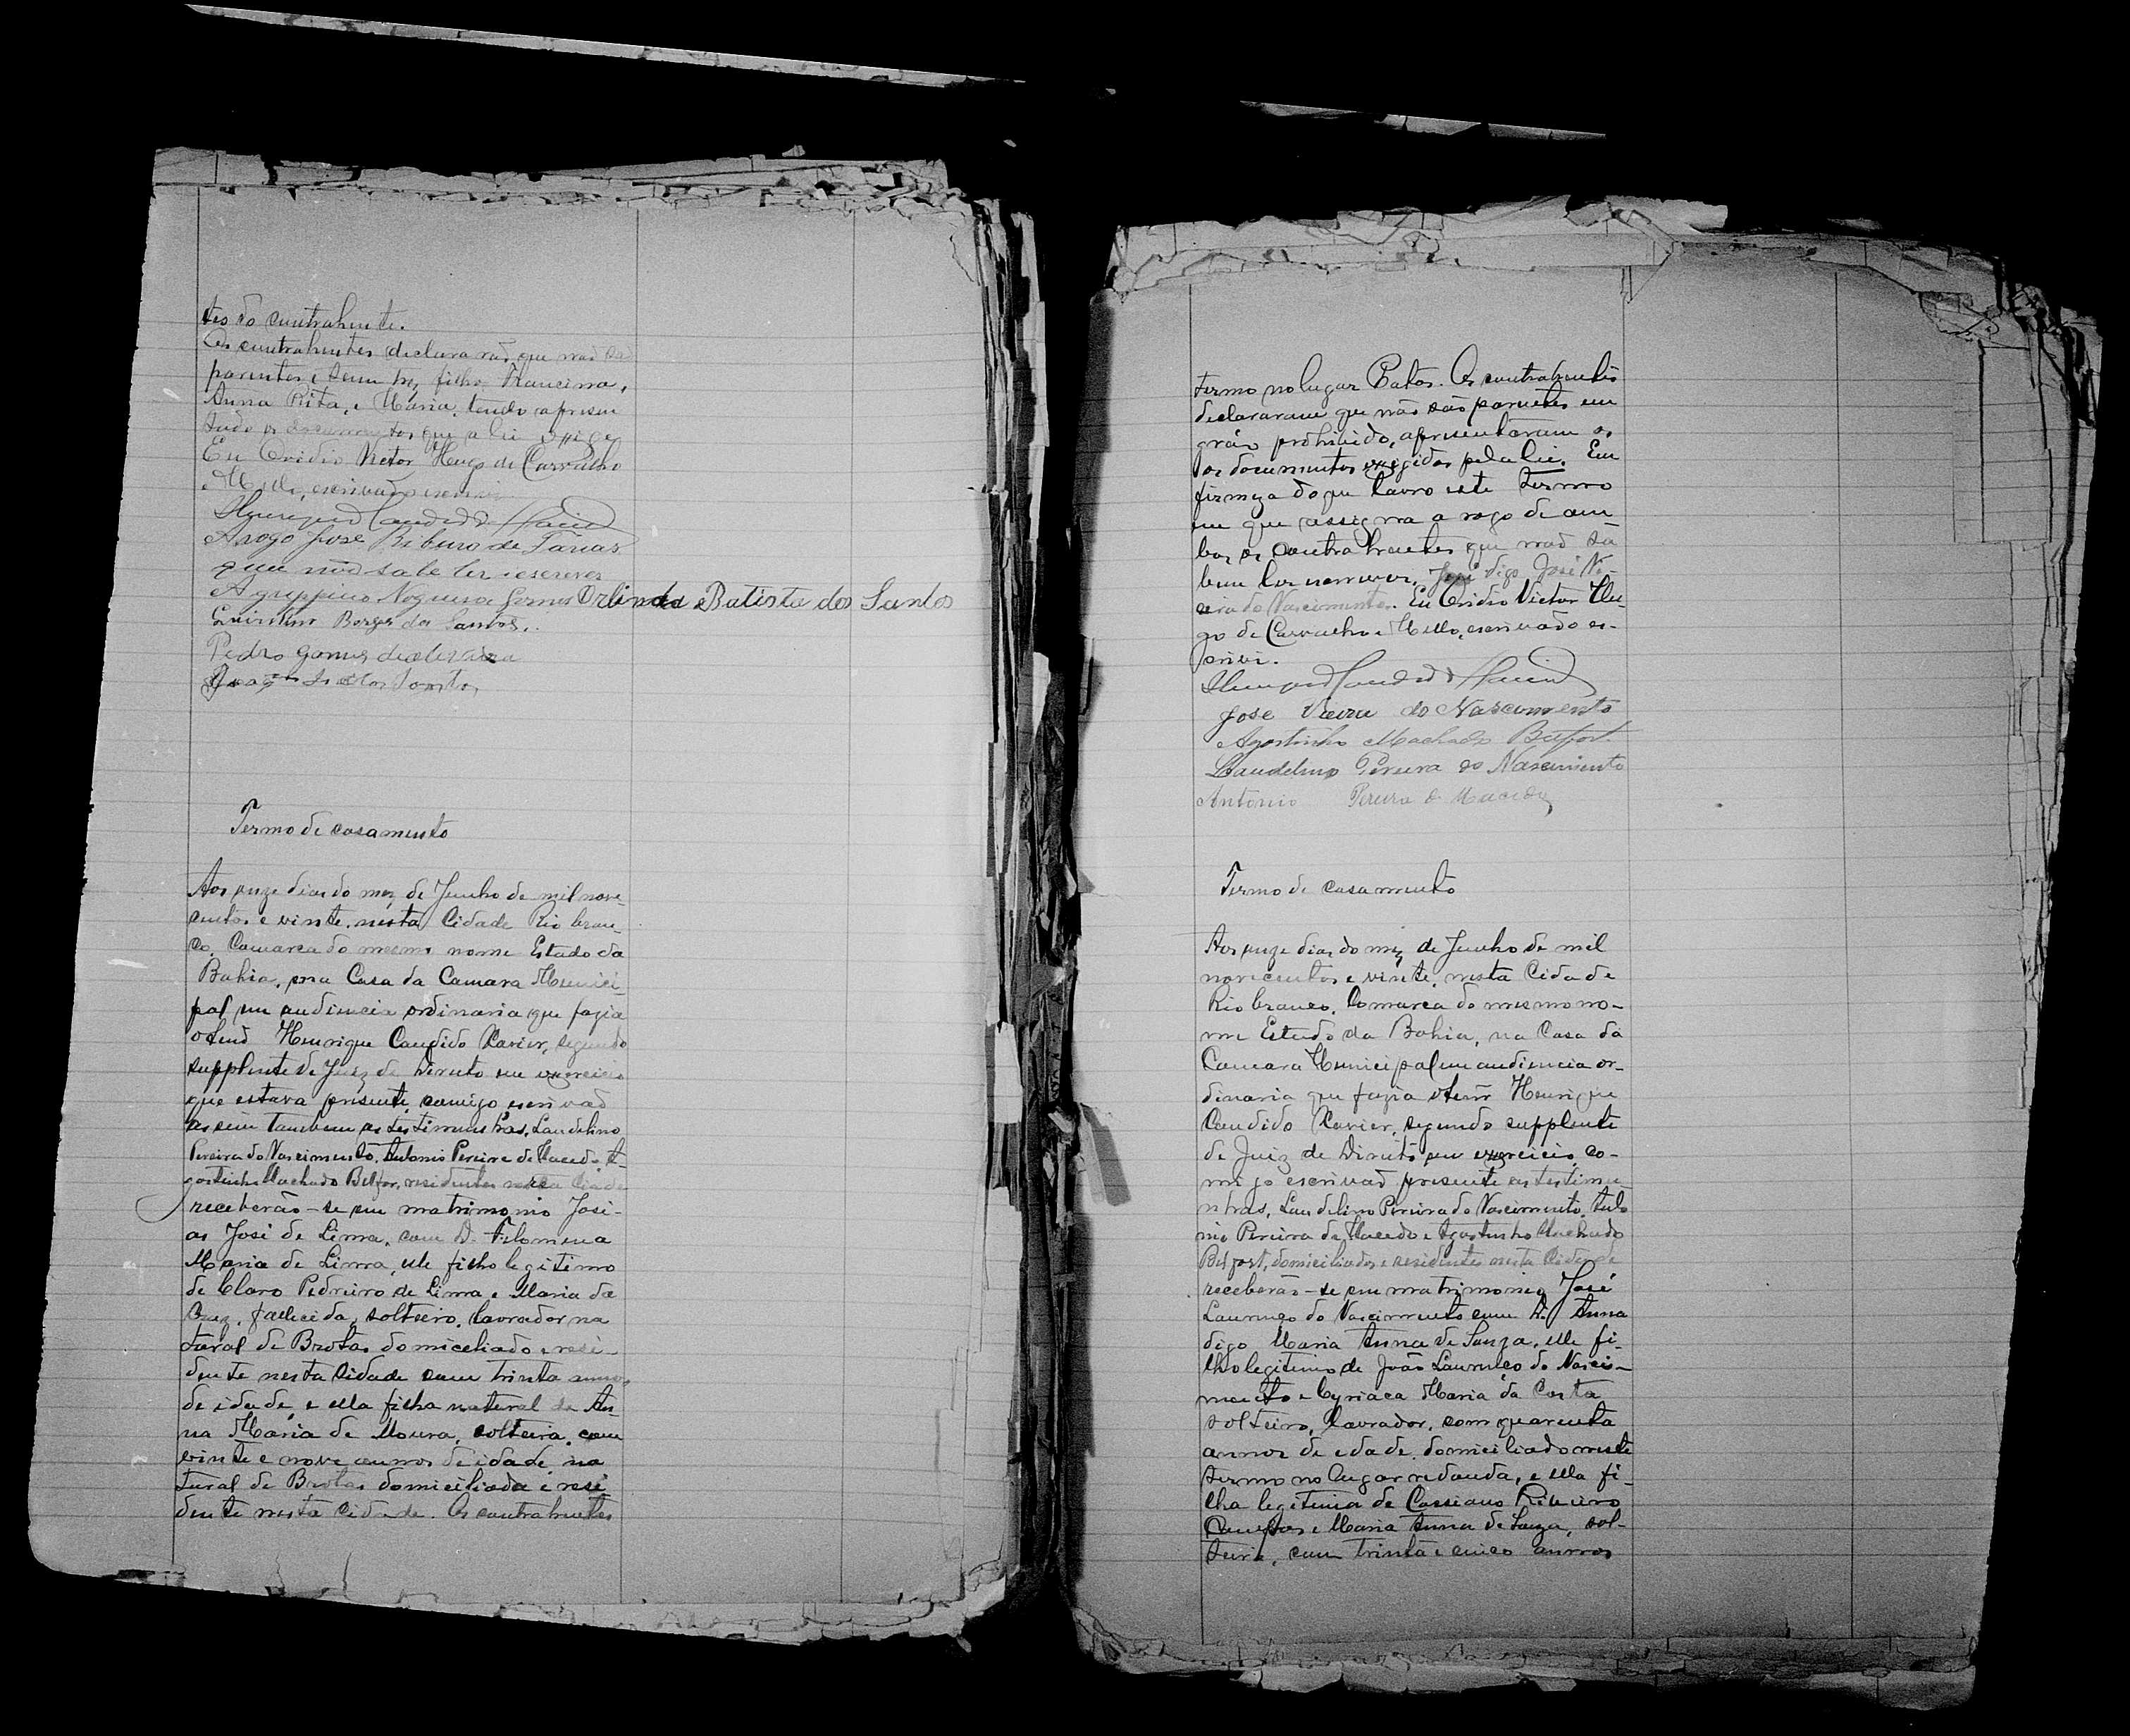 tes do contrahente.
Os contrahentes declararão que não são
parentes e teem tres filhos Francina,
Anna Rita, e Maria, tendo apresen
tado os documentos que a lei exige
Eu Ovidio Victor Hugo de Carvalho
e Mello, escrivão escrevi
Henrique Candido Xavier
A rogo José Ribeiro de Farias
que não sabe ler e escrever
Agrippino Nogueira Gomes Orlinda Batista dos Santos
Borges dos Santos.
Pedro Gomes de Oliveira
Santos
Termo de casamento
Aos onze dias do mez de Junho de mil nove
centos e vinte, nesta Cidade Rio bran-
co, Comarca do mesmo nome Estado da
Bahia, em a Casa da Camara Munici-
pal em audiencia ordinaria que fazia
o tenr Henrique Candido Xavier, segundo
supplente de Juiz de Direito em exercicio
que estava presente, comigo escrivão
assim tambem as testimunhas, Laudelino
Pereira do Nascimento, Antonio Pereira de Macedo, A-
gostinho Machado Belfor, residentes nesta Cidade
receberão-se em matrimonio Josi-
as José de Lima, com D. Filomena
Maria de Lima, elle filho legitimo
de Claro Pedreiro de Lima e Maria da
Cruz, fallecida, solteiro, lavrador na
tural de Brotas domiceliado e resi-
dente nesta Cidade com trinta annos
de idade, e ella filha natural de An-
na Maria de Moura, solteira, com
vinte e nove annos de idade, na
tural de Brotas domiciliada e resi
dente nesta Cidade. Os contrahentes
termo no lugar Batos. Os contrahentes
declararam que não são parentes em
gráo prohibido, apresentaram os
os documentos exigidos pela lei. Em
firmeza do que lavro este termo
em que assigna a rogo de am
bos os contrahentes que não sa
bem ler e escrever, José digo José Vi-
eira do Nascimento. Eu Ovidio Victor Hu-
go de Carvalho e Mello, escrivão es-
crivi.
Henrique Candido Xavier
José Vieira do Nascimento
Agostinho Machado Belfort
Laudelino Pereira do Nascimento
Antonio Pereira de Macedo
Termo de casamento
Aos onze dias do mez de Junho de mil
novecentos e vinte, nesta Cidade
Rio branco, Comarca do mesmo no-
me Estado da Bahia, na Casa da
Camara Municipal em audiencia or-
dinaria que fazia o tenr Henrique
Candido Xavier, segundo supplente
de Juiz de Direito em exercicio, co-
migo escrivão presente as testimu-
nhas, Laudelino Pereira do Nascimento, Anto
nio Pereira de Macedo e Agostinho Machado
Belfort, domiciliados e residentes nesta Cidade
receberão-se em matrimonio José
Lourenço do Nascimento com D. Anna
digo Maria Anna de Souza, elle fi-
lho legitimo de João Lourenço do Nasci-
mento e Cyriaca Maria da Costa
solteiro, lavrador, com quarenta
annos de idade, domiciliado neste
termo no lugar redonda, e ella fi-
lha legitima de Cassiano Ribeiro
Campos e Maria Anna de Souza, sol-
teira, com trinta e cinco annos